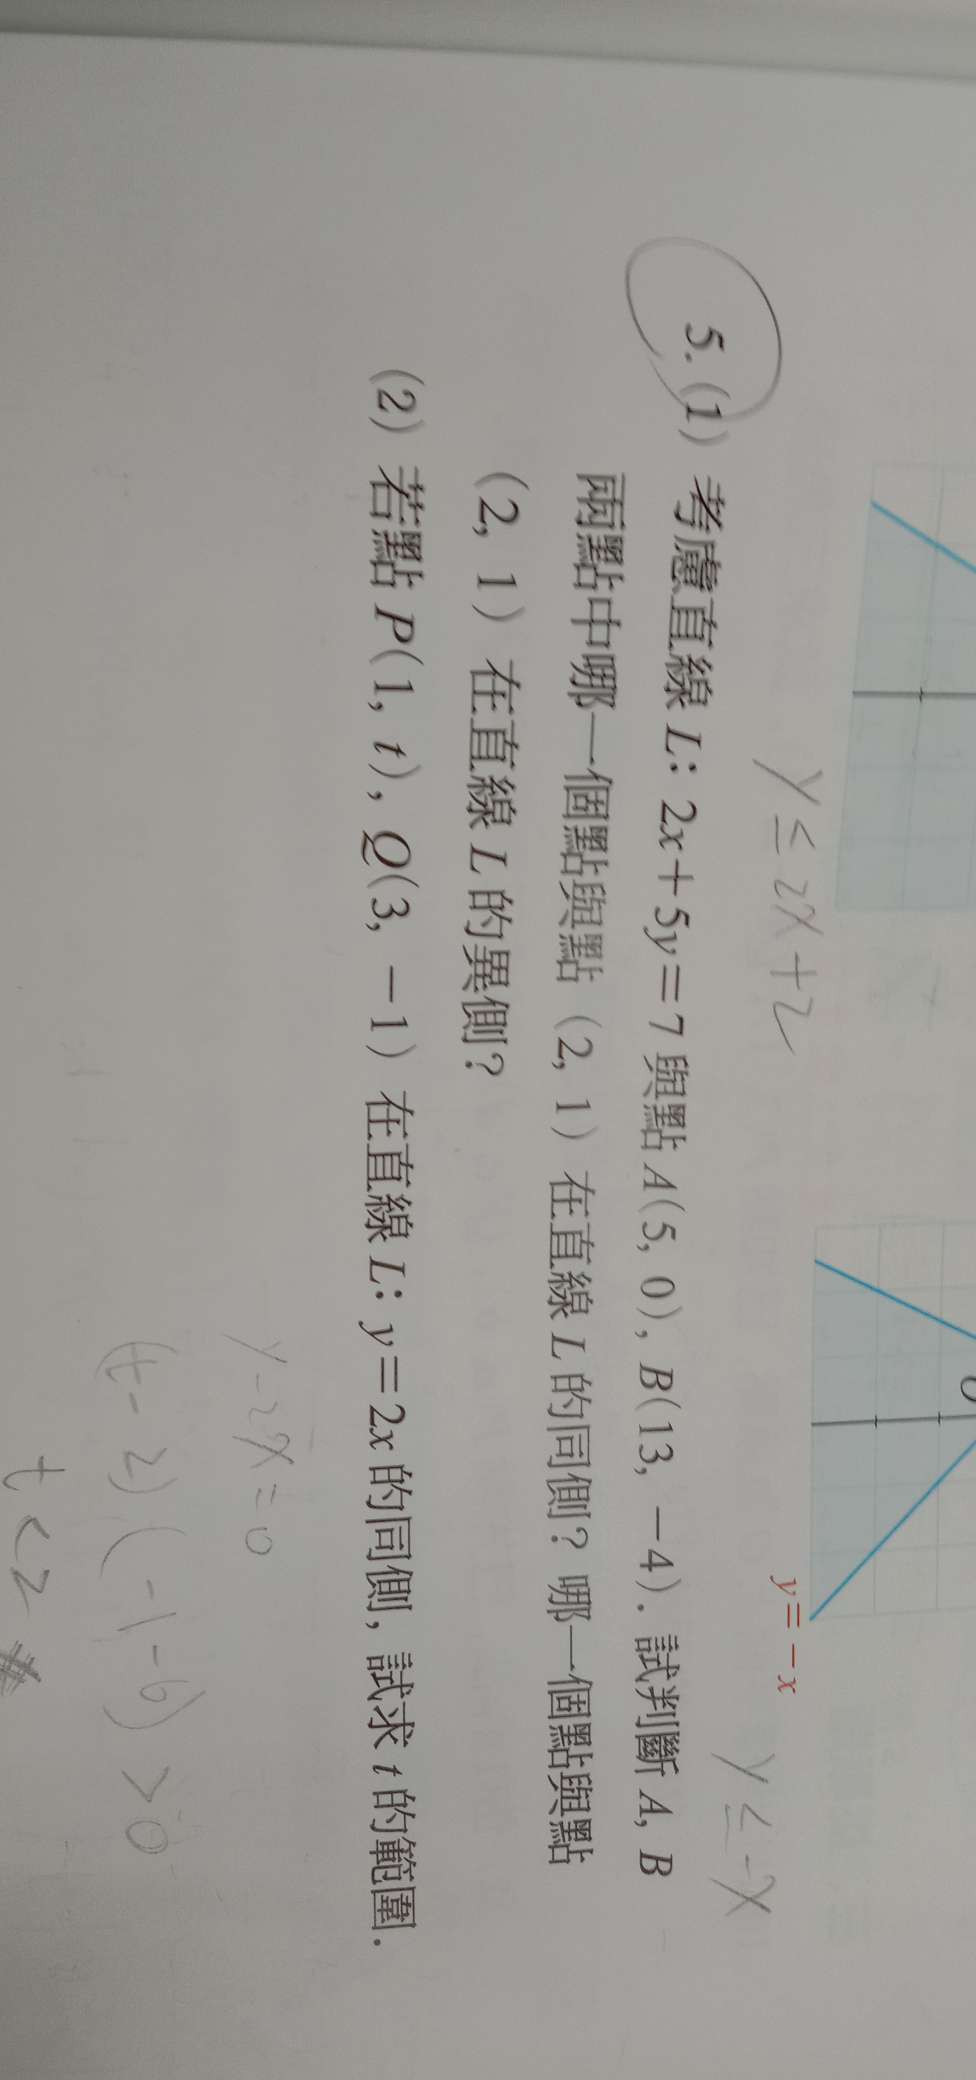 y ≤ 2x+2
y=-x
y ≤ -x
5. (1) 考慮直線 L: 2x+5y=7 與點 A(5, 0), B(13, -4). 試判斷 A, B
兩點中哪一個點與點 (2, 1) 在直線 L 的同側? 哪一個點與點
(2, 1) 在直線 L 的異側?
(2) 若點 P(1, t), Q(3, -1) 在直線 L: y=2x 的同側, 試求 t 的範圍.
y-2x=0
(t-2)(-1-6)>0
t<2